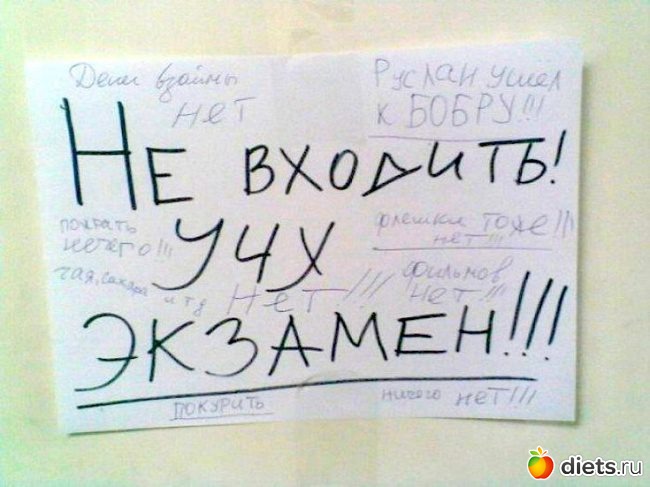 Дени взаймы
нет
Руслан ушел
к БОБРУ!!!
НЕ ВХОДИТЬ!
пожрать
нечего!!!
чая, сахара и тд нет!!!
УЧУ
флешки тоже
нет!!!
фильмов
нет!!!
ЭКЗАМЕН!!!
ПОКУРИТЬ
ничего нет!!!
diets.ru